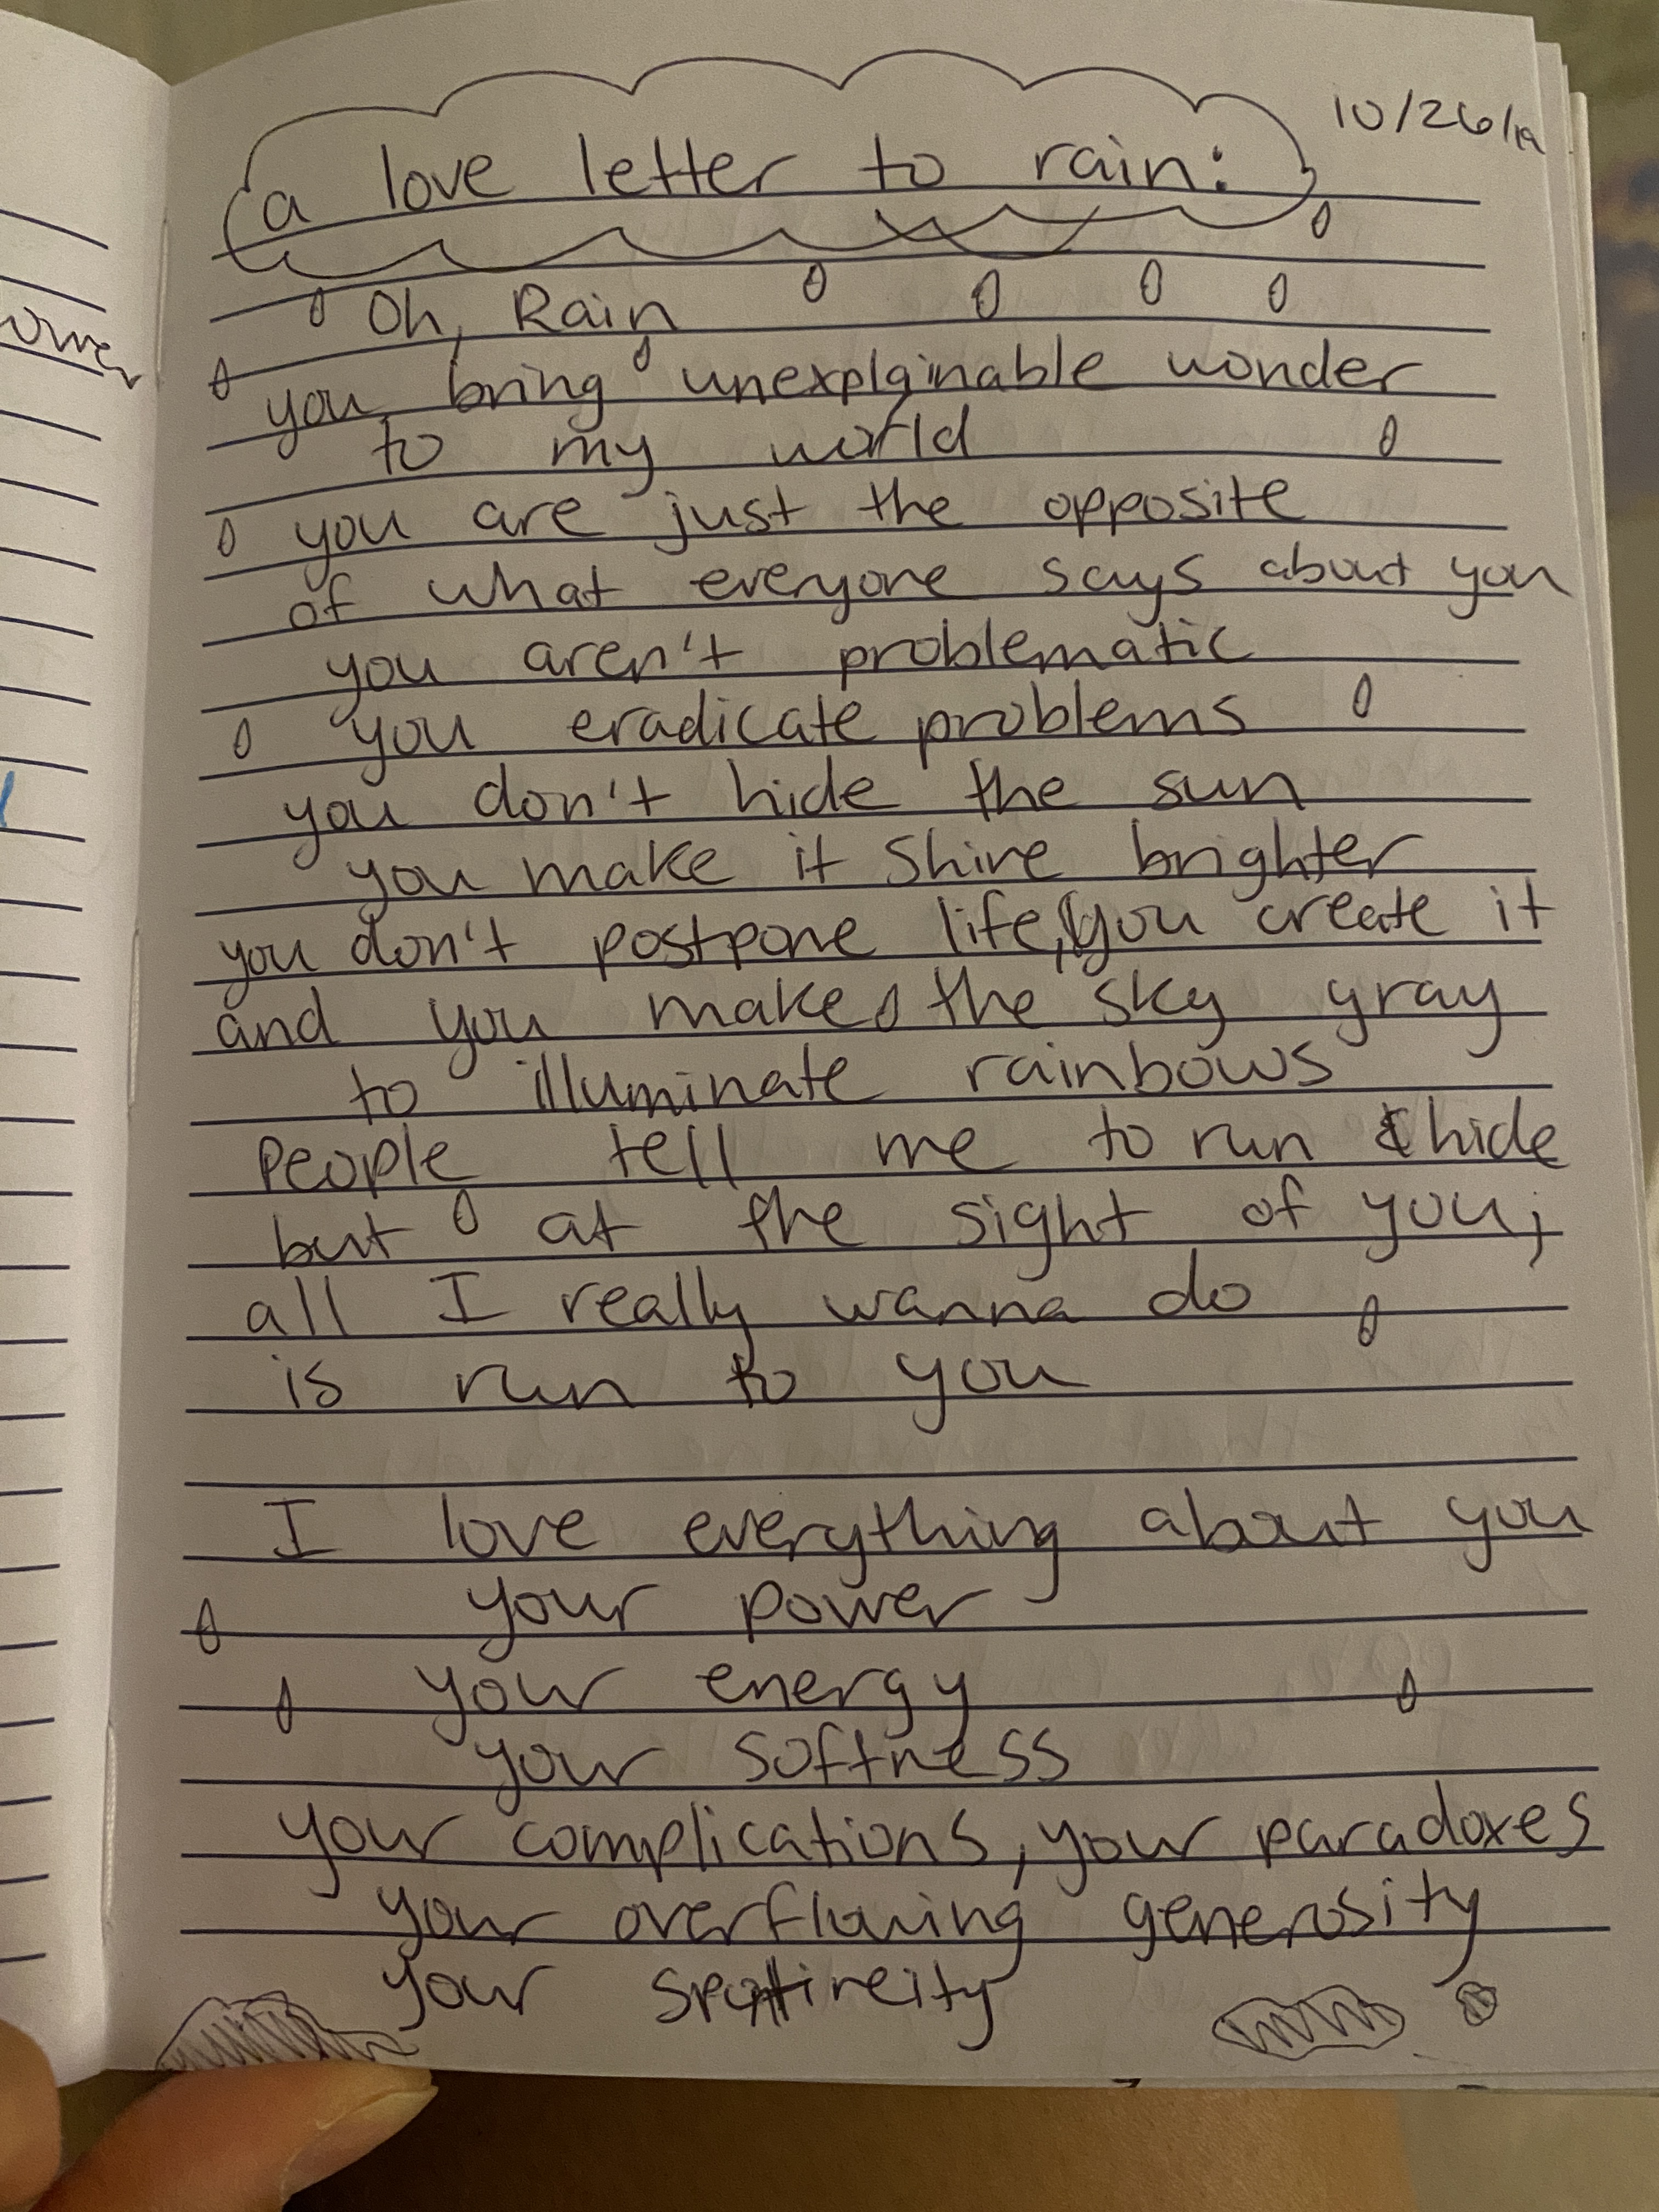 10/26/19
a love letter to rain:
Oh, Rain
you bring unexplainable wonder
to my world
you are just the opposite
of what everyone says about you
you aren't problematic
you eradicate problems
you don't hide the sun
you make it shine brighter
you don't postpone life, you create it
and you make the sky gray
to illuminate rainbows
People tell me to run & hide
but at the sight of you;
all I really wanna do
is run to you
I love everything about you
your power
your energy
your softness
your complications, your paradoxes
your overflowing generosity
your